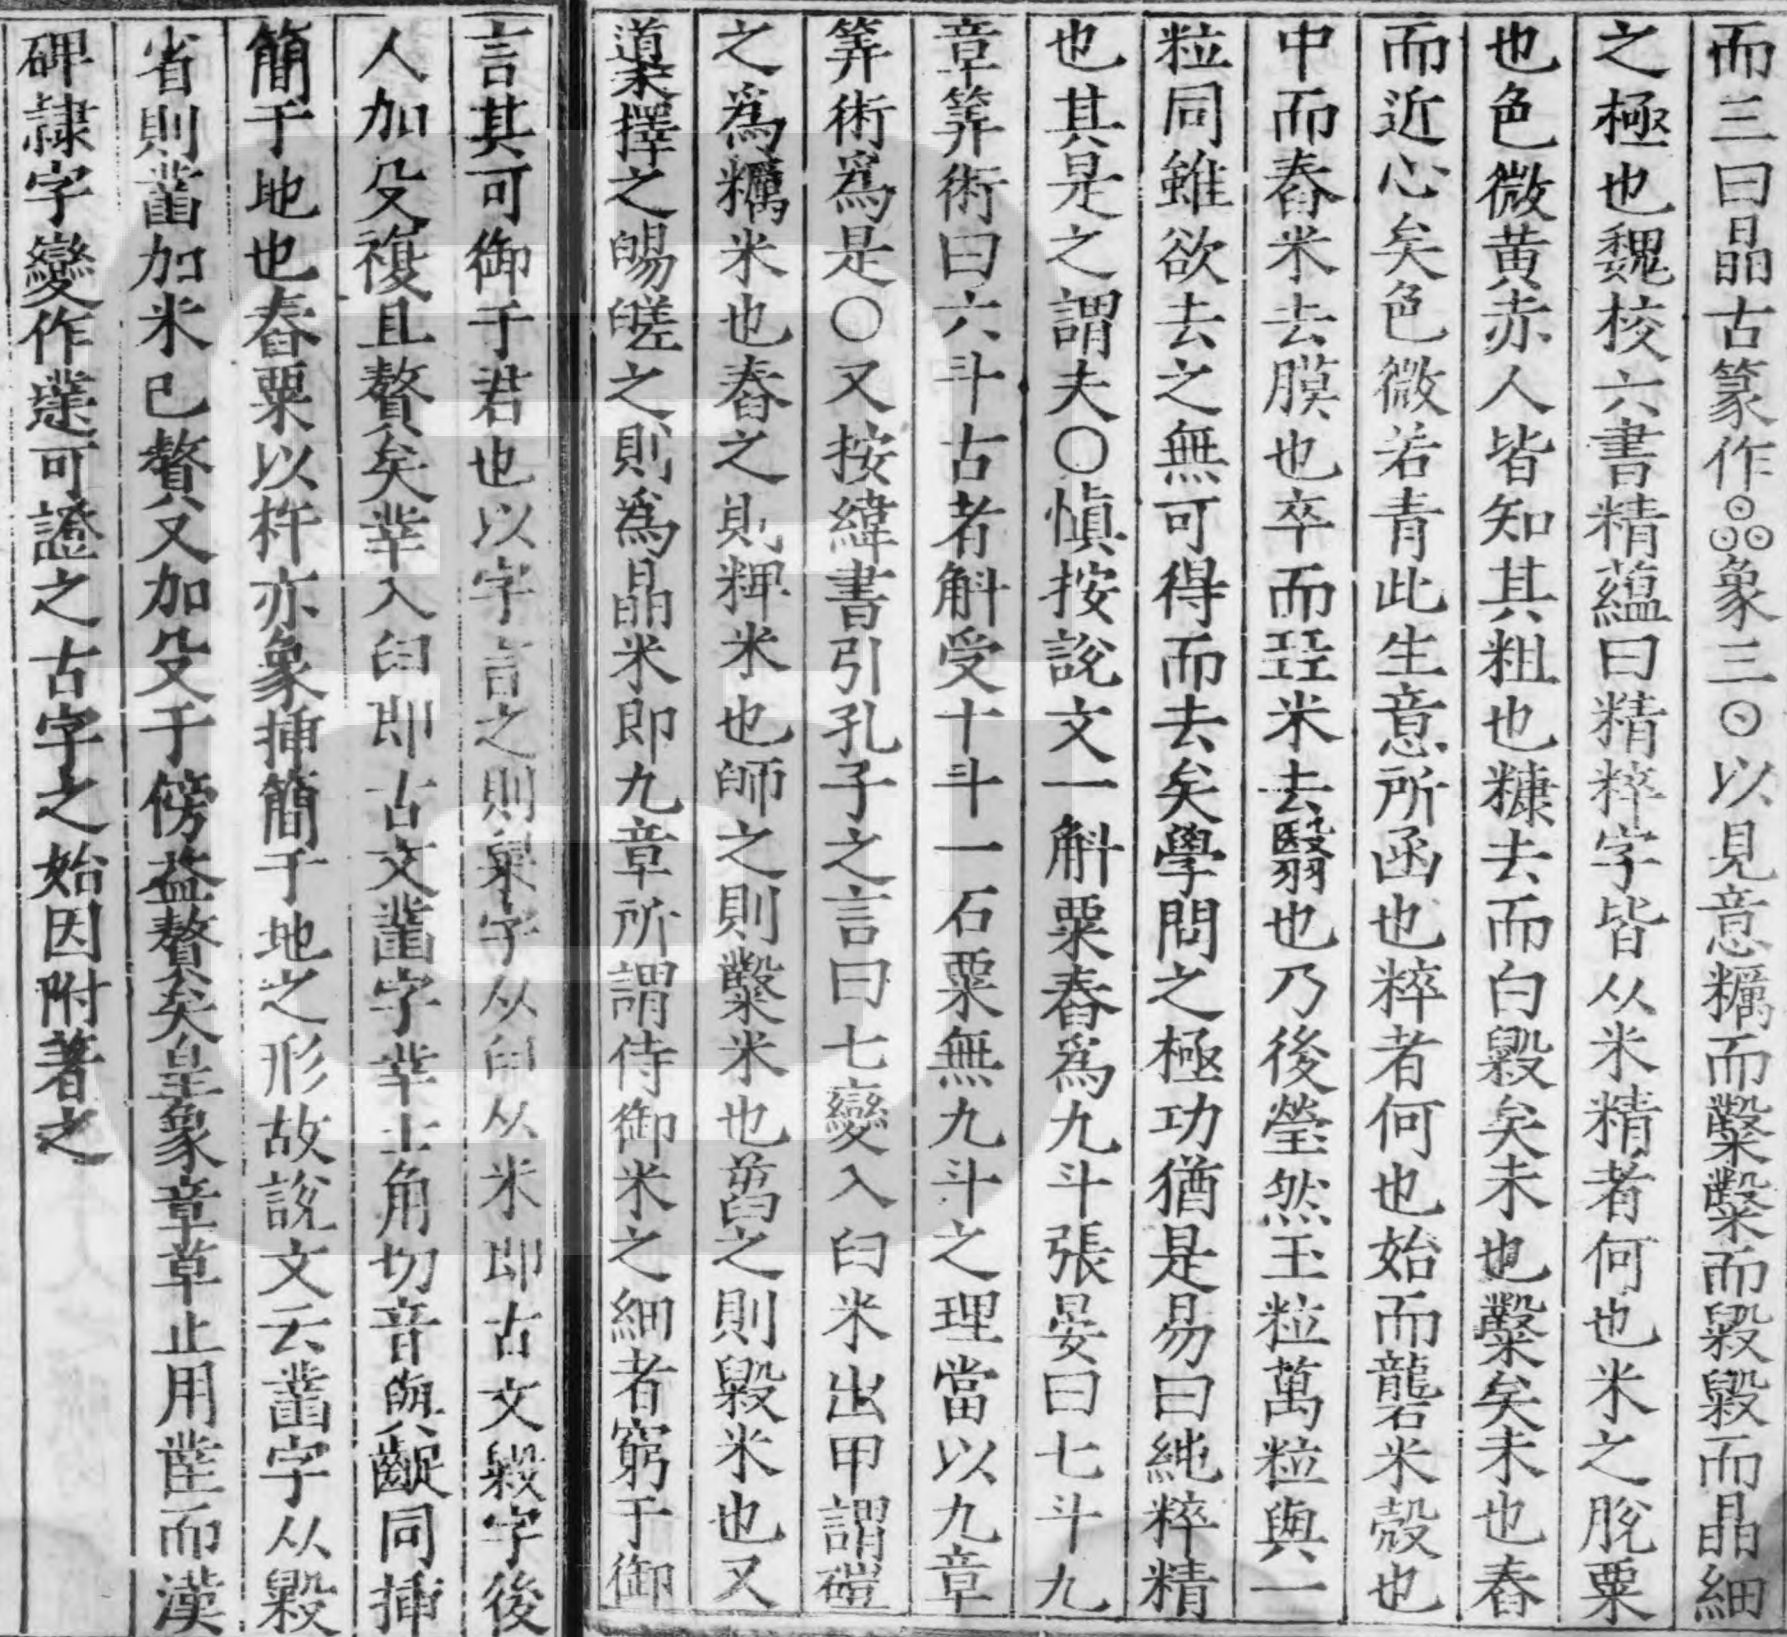 而三曰晶古篆作象三⊙以見意糲而糳糳而毇毇而晶細
之極也魏校六書精蘊曰精粹字皆从米精者何也米之脫粟
也色微黄赤人皆知其粗也糠去而白毇矣未也糳矣未也舂
而近心矣色微若青此生意所函也粹者何也始而礱米殼也
中而舂米去膜也卒而米去翳也乃後瑩然玉粒萬粒與一
粒同雖欲去之無可得而去矣學問之極功猶是易曰純粹精
也其是之謂夫○慎按說文一斛粟舂爲九斗張晏曰七斗九
章筭術曰六斗古者斛受十斗一石粟無九斗之理當以九章
筭術爲是○又按緯書引孔子之言曰七變入臼米出甲謂磑
之爲糲米也舂之則粺米也師之則糳米也臿之則毇米也又
䆃擇之暘䁟之則爲晶米即九章所謂侍御米之細者窮于御
言其可御于君也以字言之則字从臼从米即古文毇字後
人加殳複且贅矣丵入臼即古文字丵士角切音與齱同挿
簡于地也舂粟以杵亦象挿簡于地之形故說文云字从毇
省則加米已贅又加殳于傍益贅矣皇象章草止用凿而漢
碑隷字變作可證之古字之始因附著之